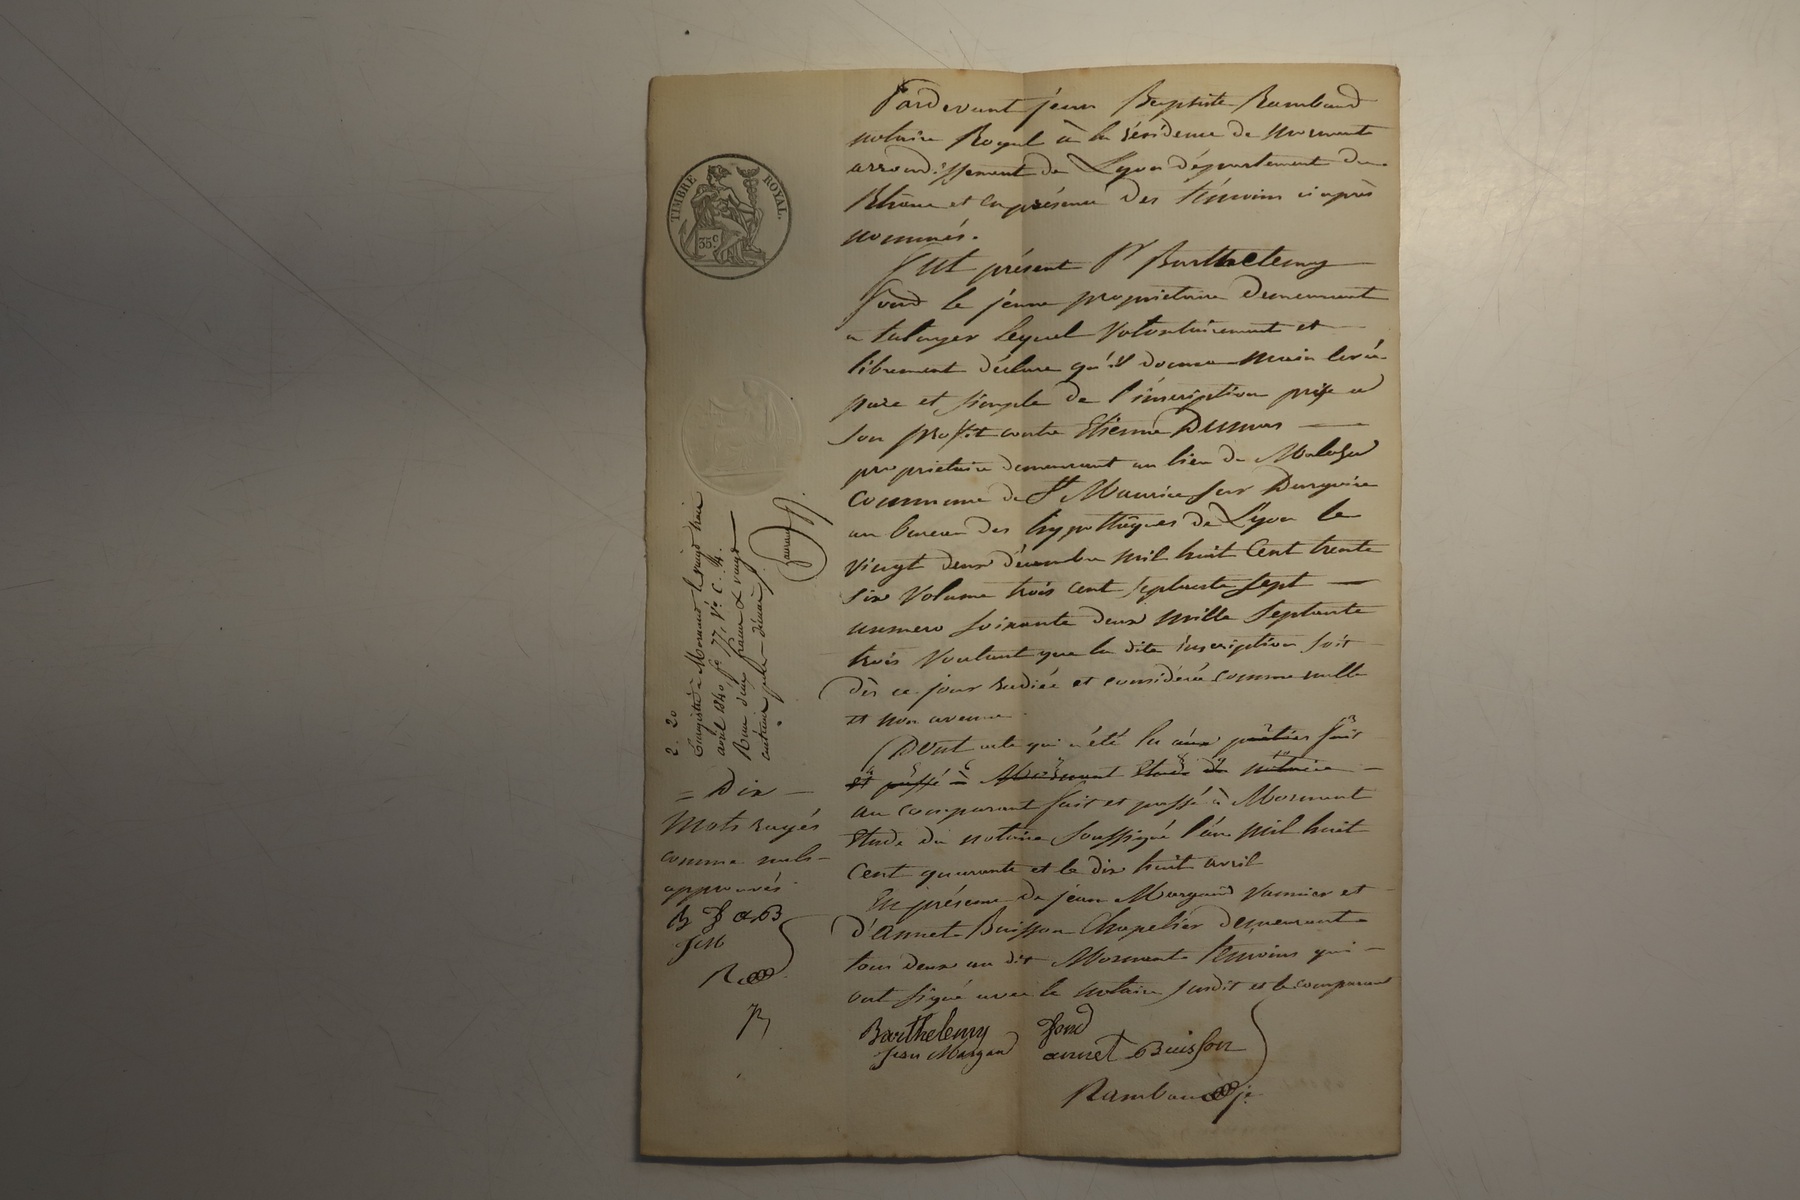 TIMBRE ROYAL.
35c
Pardevant jean Baptiste Rambaud
notaire Royal à la résidence de mornant
arrondissement de Lyon département du
Rhône et en présence des témoins ci après
nommés.
fut présent Sr Barthelemy
fond le jeune propriétaire demeurant
a taluyer lequel volontairement et
librement déclare qu'il donne main levée
pure et simple de l'inscription prise a
son profit contre Etienne Dumas
propriétaire demeurant au lieu de
commune de St Maurice sur Dargoire
au bureau des hypothèques de Lyon le
vingt deux décembre mil huit cent trente
six volume trois cent septante sept
numero soixante deux mille septante
trois voulant que la dite inscription soit
dès ce jour radiée et considérée comme nulle
et non avenue
Dont acte qui a été lu aux parties fait
et passé à Mornant Etude du notaire
au comparant fait et passé à Mornant
Etude du notaire soussigné l'an mil huit
cent quarante et le dix huit avril
En présence de jean Margand vannier et
d'annet Buisson Chapelier demeurant
tous deux au dit Mornant témoins qui
ont signé avec le notaire susdit et le comparant
Barthelemy fond
jean Margand annet Buisson
Rambaud
2. 20
Enregistré à Mornant le vingt trois
avril 1840 fo 77, Vo C. 4.
Reçu deux francs & vingt
centimes pour décime
= Dix
Mots rayés
comme nuls
approuvés
B f a B
R